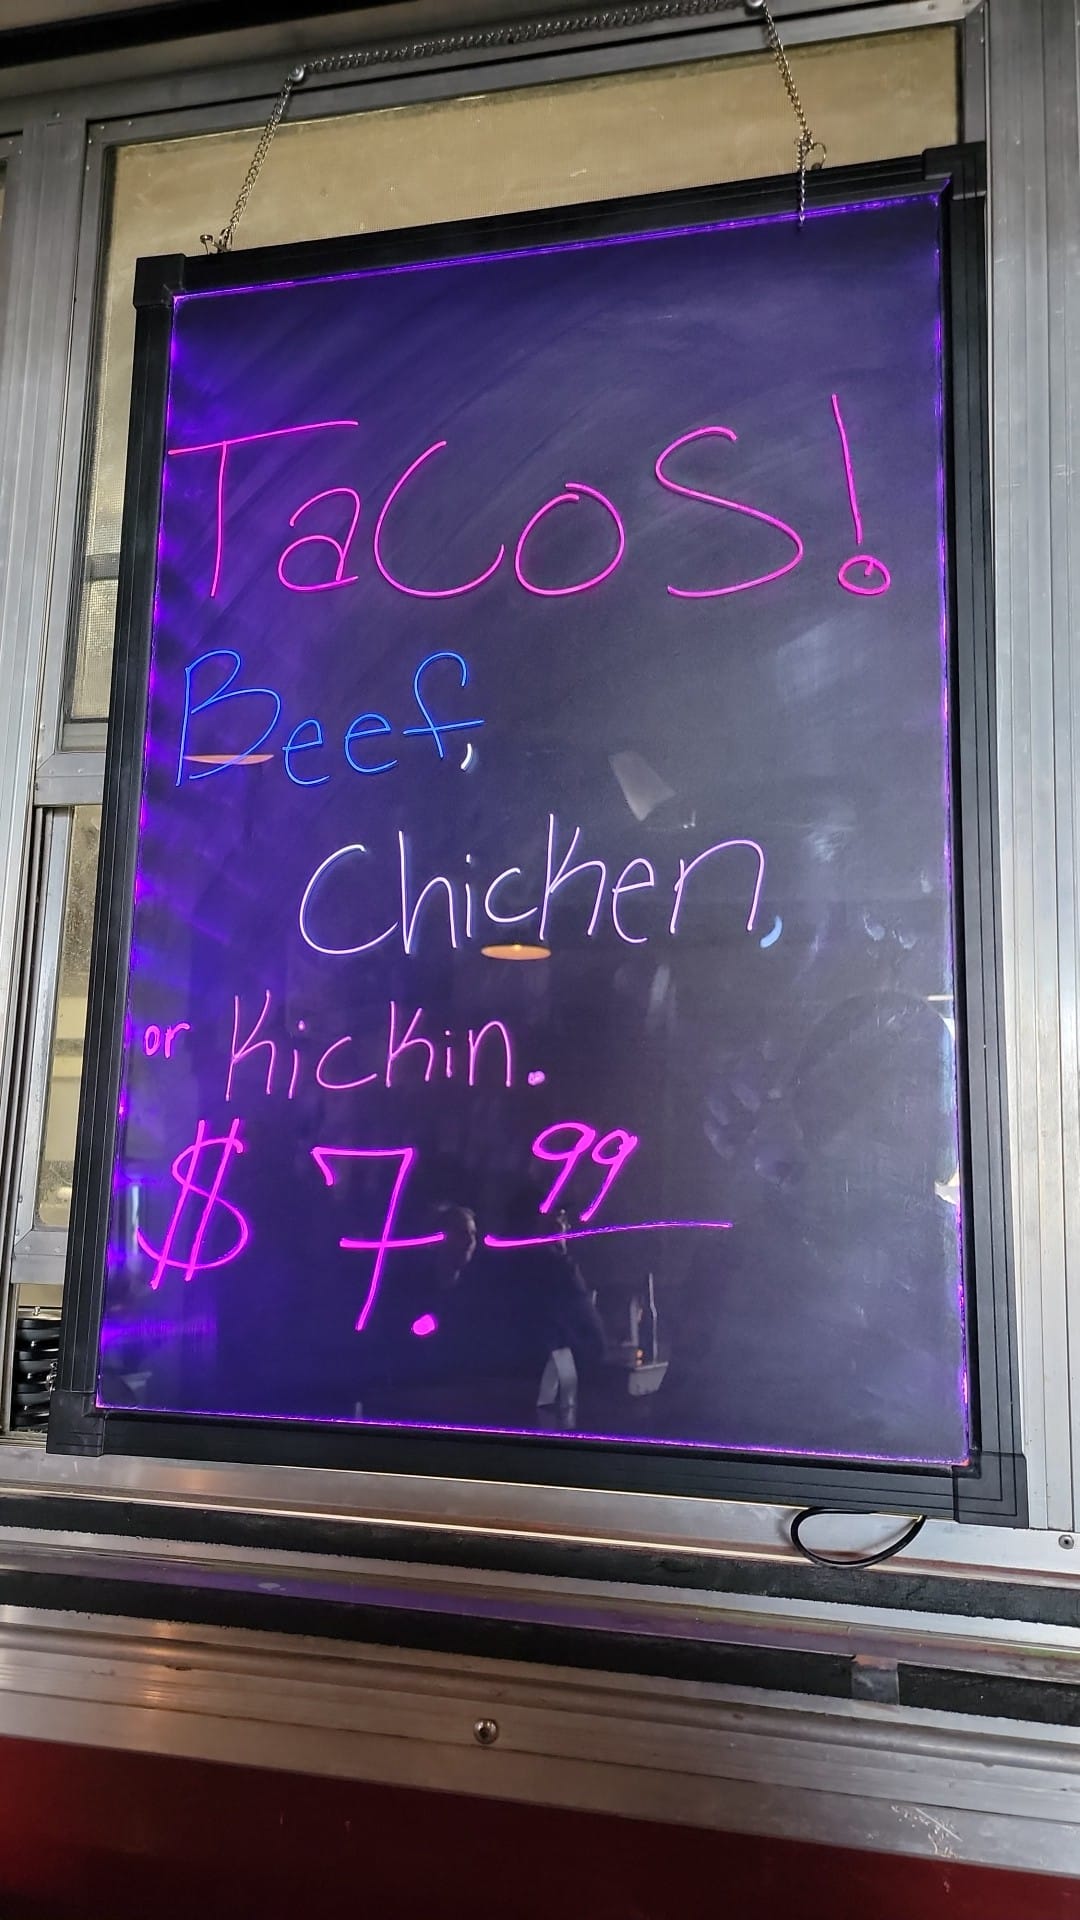 Tacos!
Beef,
Chicken,
or Kickin.
$7.99